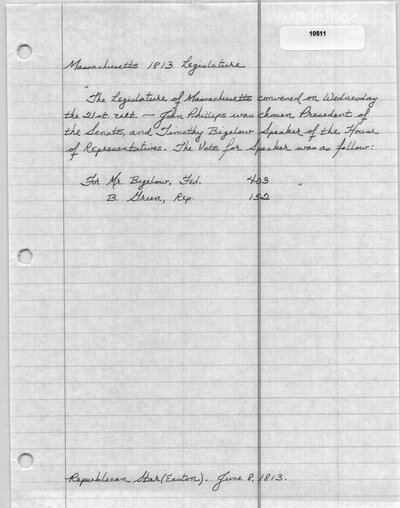 10511
Massachusetts 1813 Legislature
"The Legislature of Massachusetts convened on Wednesday
the 21st ult. — John Phillips was chosen President of
the Senate, and Timothy Bigelow Speaker of the House
of Representatives. The Vote for Speaker was as follow:
For Mr. Bigelow, Fed. 403 "
B. Green, Rep. 152
Republican Star (Easton). June 8, 1813.